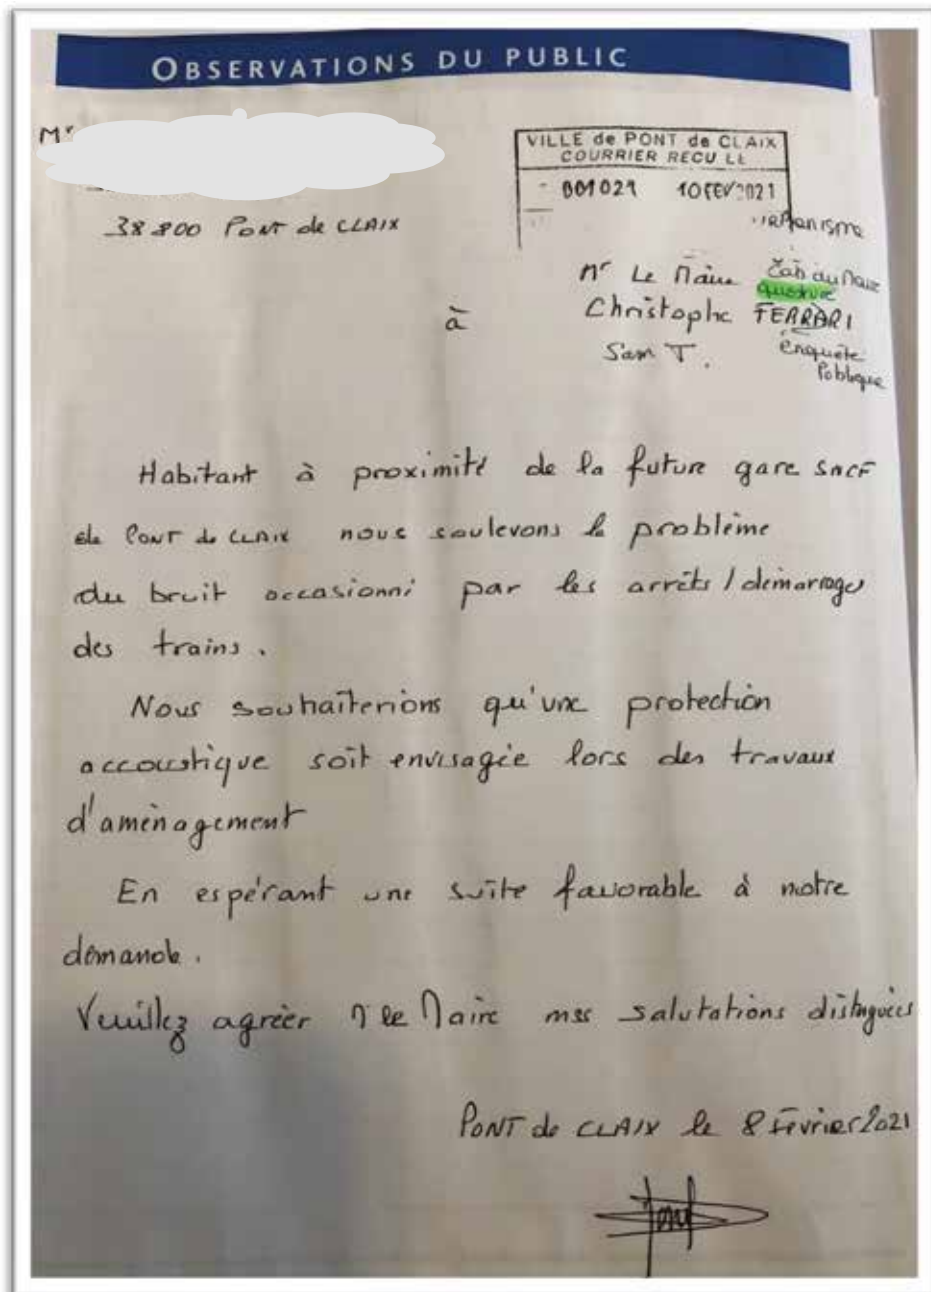 OBSERVATIONS DU PUBLIC
Mr
38800 PONT de CLAIX
VILLE de PONT de CLAIX
COURRIER RECU LE
001021 10 FEV 2021
Mr Le Maire
à Christophe FERRARI
Sam T.
Cab du Maire
enquête
Publique
Habitant à proximité de la future gare SNCF
de PONT de CLAIX nous soulevons le problème
du bruit occasionni par les arrêts / démarrages
des trains.
Nous souhaiterions qu'une protection
accoustique soit envisagée lors des travaux
d'aménagement
En espérant une suite favorable à notre
demande.
Veuillez agréer Mr le Maire mes salutations distinguées
PONT de CLAIX le 8 Février 2021